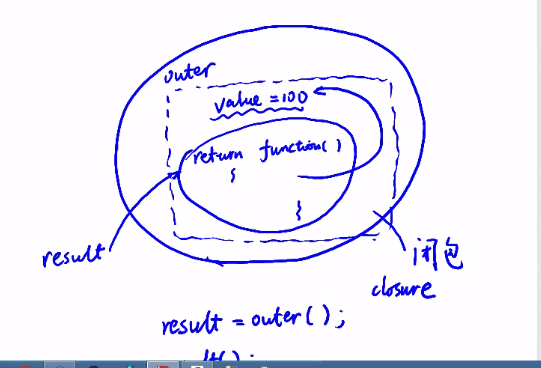 outer
value = 100
return function( )
{
}
result
闭包
closure
result = outer( );